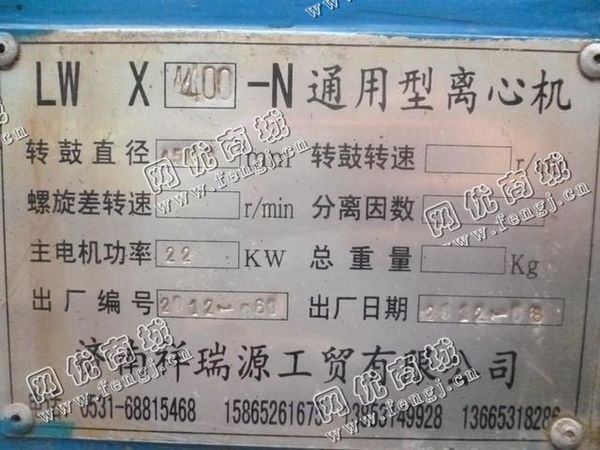 LW X 400 -N 通用型离心机
转鼓直径 mm 转鼓转速 r/
螺旋差转速 r/min 分离因数
主电机功率 22 KW 总重量 Kg
出厂编号 2012- 60 出厂日期 2012-08
济南祥瑞源工贸有限公司
电话 0531-68815468 15865261673 13853149928 13665318286
网优商城
www.fengj.cn
网优商城
www.fengj.cn
网优商城
www.fengj.cn
网优商城
www.fengj.cn
网优商城
www.fengj.cn